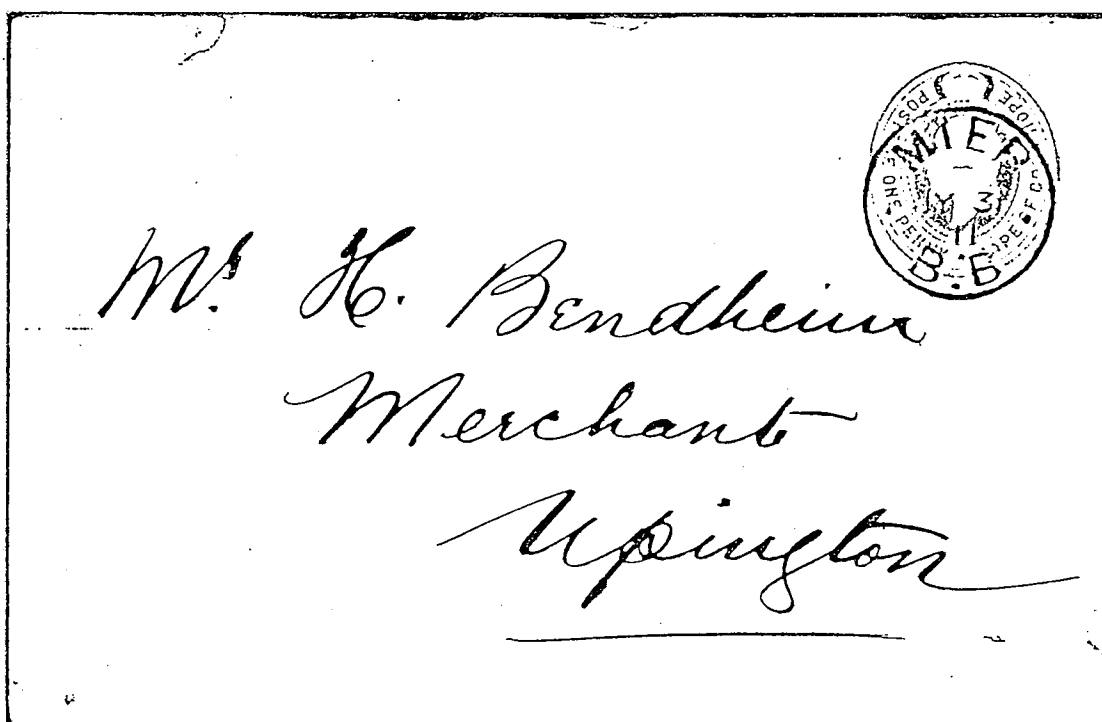 MIER
B.B
Mr. H. Bendheim
Merchant
Upington